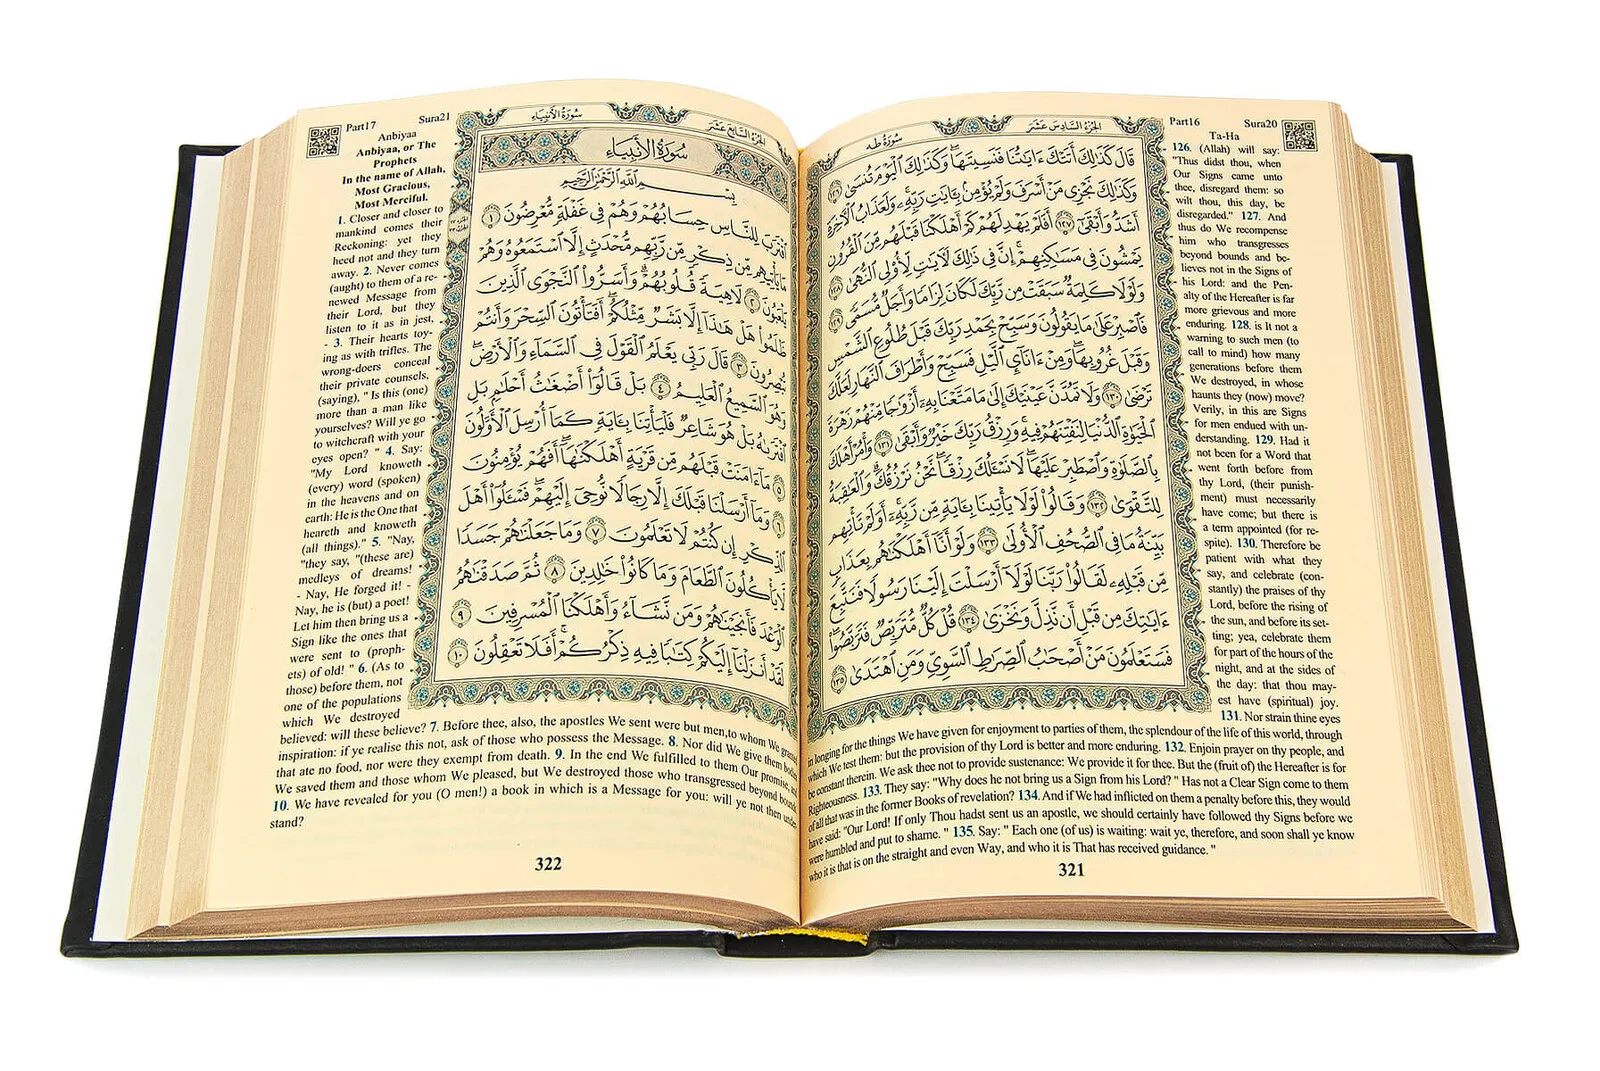 Part16 Sura20
Ta-Ha
126. (Allah) will say:
"Thus didst thou, when
Our Signs came unto
thee, disregard them: so
wilt thou, this day, be
disregarded." 127. And
thus do We recompense
him who transgresses
beyond bounds and be-
lieves not in the Signs of
his Lord: and the Pen-
alty of the Hereafter is far
more grievous and more
enduring. 128. is It not a
warning to such men (to
call to mind) how many
generations before them
We destroyed, in whose
haunts they (now) move?
Verily, in this are Signs
for men endued with un-
derstanding. 129. Had it
not been for a Word that
went forth before from
thy Lord, (their punish-
ment) must necessarily
have come; but there is
a term appointed (for re-
spite). 130. Therefore be
patient with what they
say, and celebrate (con-
stantly) the praises of thy
Lord, before the rising of
the sun, and before its set-
ting; yea, celebrate them
for part of the hours of the
night, and at the sides of
the day: that thou may-
est have (spiritual) joy.
131. Nor strain thine eyes
in longing for the things We have given for enjoyment to parties of them, the splendour of the life of this world, through
which We test them: but the provision of thy Lord is better and more enduring. 132. Enjoin prayer on thy people, and
be constant therein. We ask thee not to provide sustenance: We provide it for thee. But the (fruit of) the Hereafter is for
Righteousness. 133. They say: "Why does he not bring us a Sign from his Lord? " Has not a Clear Sign come to them
of all that was in the former Books of revelation? 134. And if We had inflicted on them a penalty before this, they would
have said: "Our Lord! If only Thou hadst sent us an apostle, we should certainly have followed thy Signs before we
were humbled and put to shame. " 135. Say: " Each one (of us) is waiting: wait ye, therefore, and soon shall ye know
who it is that is on the straight and even Way, and who it is That has received guidance. "
الجزء السادس عشر سورة طه
قَالَ كَذَٰلِكَ أَتَتْكَ ءَايَٰتُنَا فَنَسِيتَهَا ۖ وَكَذَٰلِكَ ٱلْيَوْمَ تُنسَىٰ ١٢٦
وَكَذَٰلِكَ نَجْزِى مَنْ أَسْرَفَ وَلَمْ يُؤْمِنۢ بِـَٔايَٰتِ رَبِّهِۦ ۚ وَلَعَذَابُ ٱلْـَٔاخِرَةِ
أَشَدُّ وَأَبْقَىٰٓ ١٢٧ أَفَلَمْ يَهْدِ لَهُمْ كَمْ أَهْلَكْنَا قَبْلَهُم مِّنَ ٱلْقُرُونِ
يَمْشُونَ فِى مَسَٰكِنِهِمْ ۗ إِنَّ فِى ذَٰلِكَ لَـَٔايَٰتٍ لِّأُو۟لِى ٱلنُّهَىٰ ١٢٨
وَلَوْلَا كَلِمَةٌ سَبَقَتْ مِن رَّبِّكَ لَكَانَ لِزَامًا وَأَجَلٌ مُّسَمًّى ١٢٩
فَٱصْبِرْ عَلَىٰ مَا يَقُولُونَ وَسَبِّحْ بِحَمْدِ رَبِّكَ قَبْلَ طُلُوعِ ٱلشَّمْسِ
وَقَبْلَ غُرُوبِهَا ۖ وَمِنْ ءَانَآئِ ٱلَّيْلِ فَسَبِّحْ وَأَطْرَافَ ٱلنَّهَارِ لَعَلَّكَ
تَرْضَىٰ ١٣٠ وَلَا تَمُدَّنَّ عَيْنَيْكَ إِلَىٰ مَا مَتَّعْنَا بِهِۦٓ أَزْوَٰجًا مِّنْهُمْ زَهْرَةَ
ٱلْحَيَوٰةِ ٱلدُّنْيَا لِنَفْتِنَهُمْ فِيهِ ۚ وَرِزْقُ رَبِّكَ خَيْرٌ وَأَبْقَىٰ ١٣١ وَأْمُرْ أَهْلَكَ
بِٱلصَّلَوٰةِ وَٱصْطَبِرْ عَلَيْهَا ۖ لَا نَسْـَٔلُكَ رِزْقًا ۖ نَّحْنُ نَرْزُقُكَ ۗ وَٱلْعَٰقِبَةُ
لِلتَّقْوَىٰ ١٣٢ وَقَالُوا۟ لَوْلَا يَأْتِينَا بِـَٔايَةٍ مِّن رَّبِّهِۦٓ ۚ أَوَلَمْ تَأْتِهِم
بَيِّنَةُ مَا فِى ٱلصُّحُفِ ٱلْأُولَىٰ ١٣٣ وَلَوْ أَنَّآ أَهْلَكْنَٰهُم بِعَذَابٍ
مِّن قَبْلِهِۦ لَقَالُوا۟ رَبَّنَا لَوْلَآ أَرْسَلْتَ إِلَيْنَا رَسُولًا فَنَتَّبِعَ
ءَايَٰتِكَ مِن قَبْلِ أَن نَّذِلَّ وَنَخْزَىٰ ١٣٤ قُلْ كُلٌّ مُّتَرَبِّصٌ فَتَرَبَّصُوا۟ ۖ
فَسَتَعْلَمُونَ مَنْ أَصْحَٰبُ ٱلصِّرَٰطِ ٱلسَّوِىِّ وَمَنِ ٱهْتَدَىٰ ١٣٥
321
Part17 Sura21
Anbiyaa
Anbiyaa, or The
Prophets
In the name of Allah,
Most Gracious,
Most Merciful.
1. Closer and closer to
mankind comes their
Reckoning: yet they
heed not and they turn
away. 2. Never comes
(aught) to them of a re-
newed Message from
their Lord, but they
listen to it as in jest,
- 3. Their hearts toy-
ing as with trifles. The
wrong-doers conceal
their private counsels,
(saying), " Is this (one)
more than a man like
yourselves? Will ye go
to witchcraft with your
eyes open? " 4. Say:
"My Lord knoweth
(every) word (spoken)
in the heavens and on
earth: He is the One that
heareth and knoweth
(all things)." 5. "Nay,
"they say, "(these are)
medleys of dreams!
- Nay, He forged it! -
Nay, he is (but) a poet!
Let him then bring us a
Sign like the ones that
were sent to (proph-
ets) of old! " 6. (As to
those) before them, not
one of the populations
which We destroyed
believed: will these believe? 7. Before thee, also, the apostles We sent were but men,to whom We
inspiration: if ye realise this not, ask of those who possess the Message. 8. Nor did We give them
that ate no food, nor were they exempt from death. 9. In the end We fulfilled to them Our promise,
We saved them and those whom We pleased, but We destroyed those who transgressed beyond
10. We have revealed for you (O men!) a book in which is a Message for you: will ye not then under-
stand?
الجزء السابع عشر سورة الأنبياء
سورة الأنبياء
بِسْمِ ٱللَّهِ ٱلرَّحْمَٰنِ ٱلرَّحِيمِ
ٱقْتَرَبَ لِلنَّاسِ حِسَابُهُمْ وَهُمْ فِى غَفْلَةٍ مُّعْرِضُونَ ١
مَا يَأْتِيهِم مِّن ذِكْرٍ مِّن رَّبِّهِم مُّحْدَثٍ إِلَّا ٱسْتَمَعُوهُ وَهُمْ
يَلْعَبُونَ ٢ لَاهِيَةً قُلُوبُهُمْ ۗ وَأَسَرُّوا۟ ٱلنَّجْوَى ٱلَّذِينَ
ظَلَمُوا۟ هَلْ هَٰذَآ إِلَّا بَشَرٌ مِّثْلُكُمْ ۖ أَفَتَأْتُونَ ٱلسِّحْرَ وَأَنتُمْ
تُبْصِرُونَ ٣ قَالَ رَبِّى يَعْلَمُ ٱلْقَوْلَ فِى ٱلسَّمَآءِ وَٱلْأَرْضِ ۖ
وَهُوَ ٱلسَّمِيعُ ٱلْعَلِيمُ ٤ بَلْ قَالُوٓا۟ أَضْغَٰثُ أَحْلَٰمٍۭ بَلِ
ٱفْتَرَىٰهُ بَلْ هُوَ شَاعِرٌ فَلْيَأْتِنَا بِـَٔايَةٍ كَمَآ أُرْسِلَ ٱلْأَوَّلُونَ
٥ مَآ ءَامَنَتْ قَبْلَهُم مِّن قَرْيَةٍ أَهْلَكْنَٰهَآ ۖ أَفَهُمْ يُؤْمِنُونَ
٦ وَمَآ أَرْسَلْنَا قَبْلَكَ إِلَّا رِجَالًا نُّوحِىٓ إِلَيْهِمْ ۖ فَسْـَٔلُوٓا۟ أَهْلَ
ٱلذِّكْرِ إِن كُنتُمْ لَا تَعْلَمُونَ ٧ وَمَا جَعَلْنَٰهُمْ جَسَدًا
لَّا يَأْكُلُونَ ٱلطَّعَامَ وَمَا كَانُوا۟ خَٰلِدِينَ ٨ ثُمَّ صَدَقْنَٰهُمُ
ٱلْوَعْدَ فَأَنجَيْنَٰهُمْ وَمَن نَّشَآءُ وَأَهْلَكْنَا ٱلْمُسْرِفِينَ ٩
لَقَدْ أَنزَلْنَآ إِلَيْكُمْ كِتَٰبًا فِيهِ ذِكْرُكُمْ ۖ أَفَلَا تَعْقِلُونَ ١٠
322